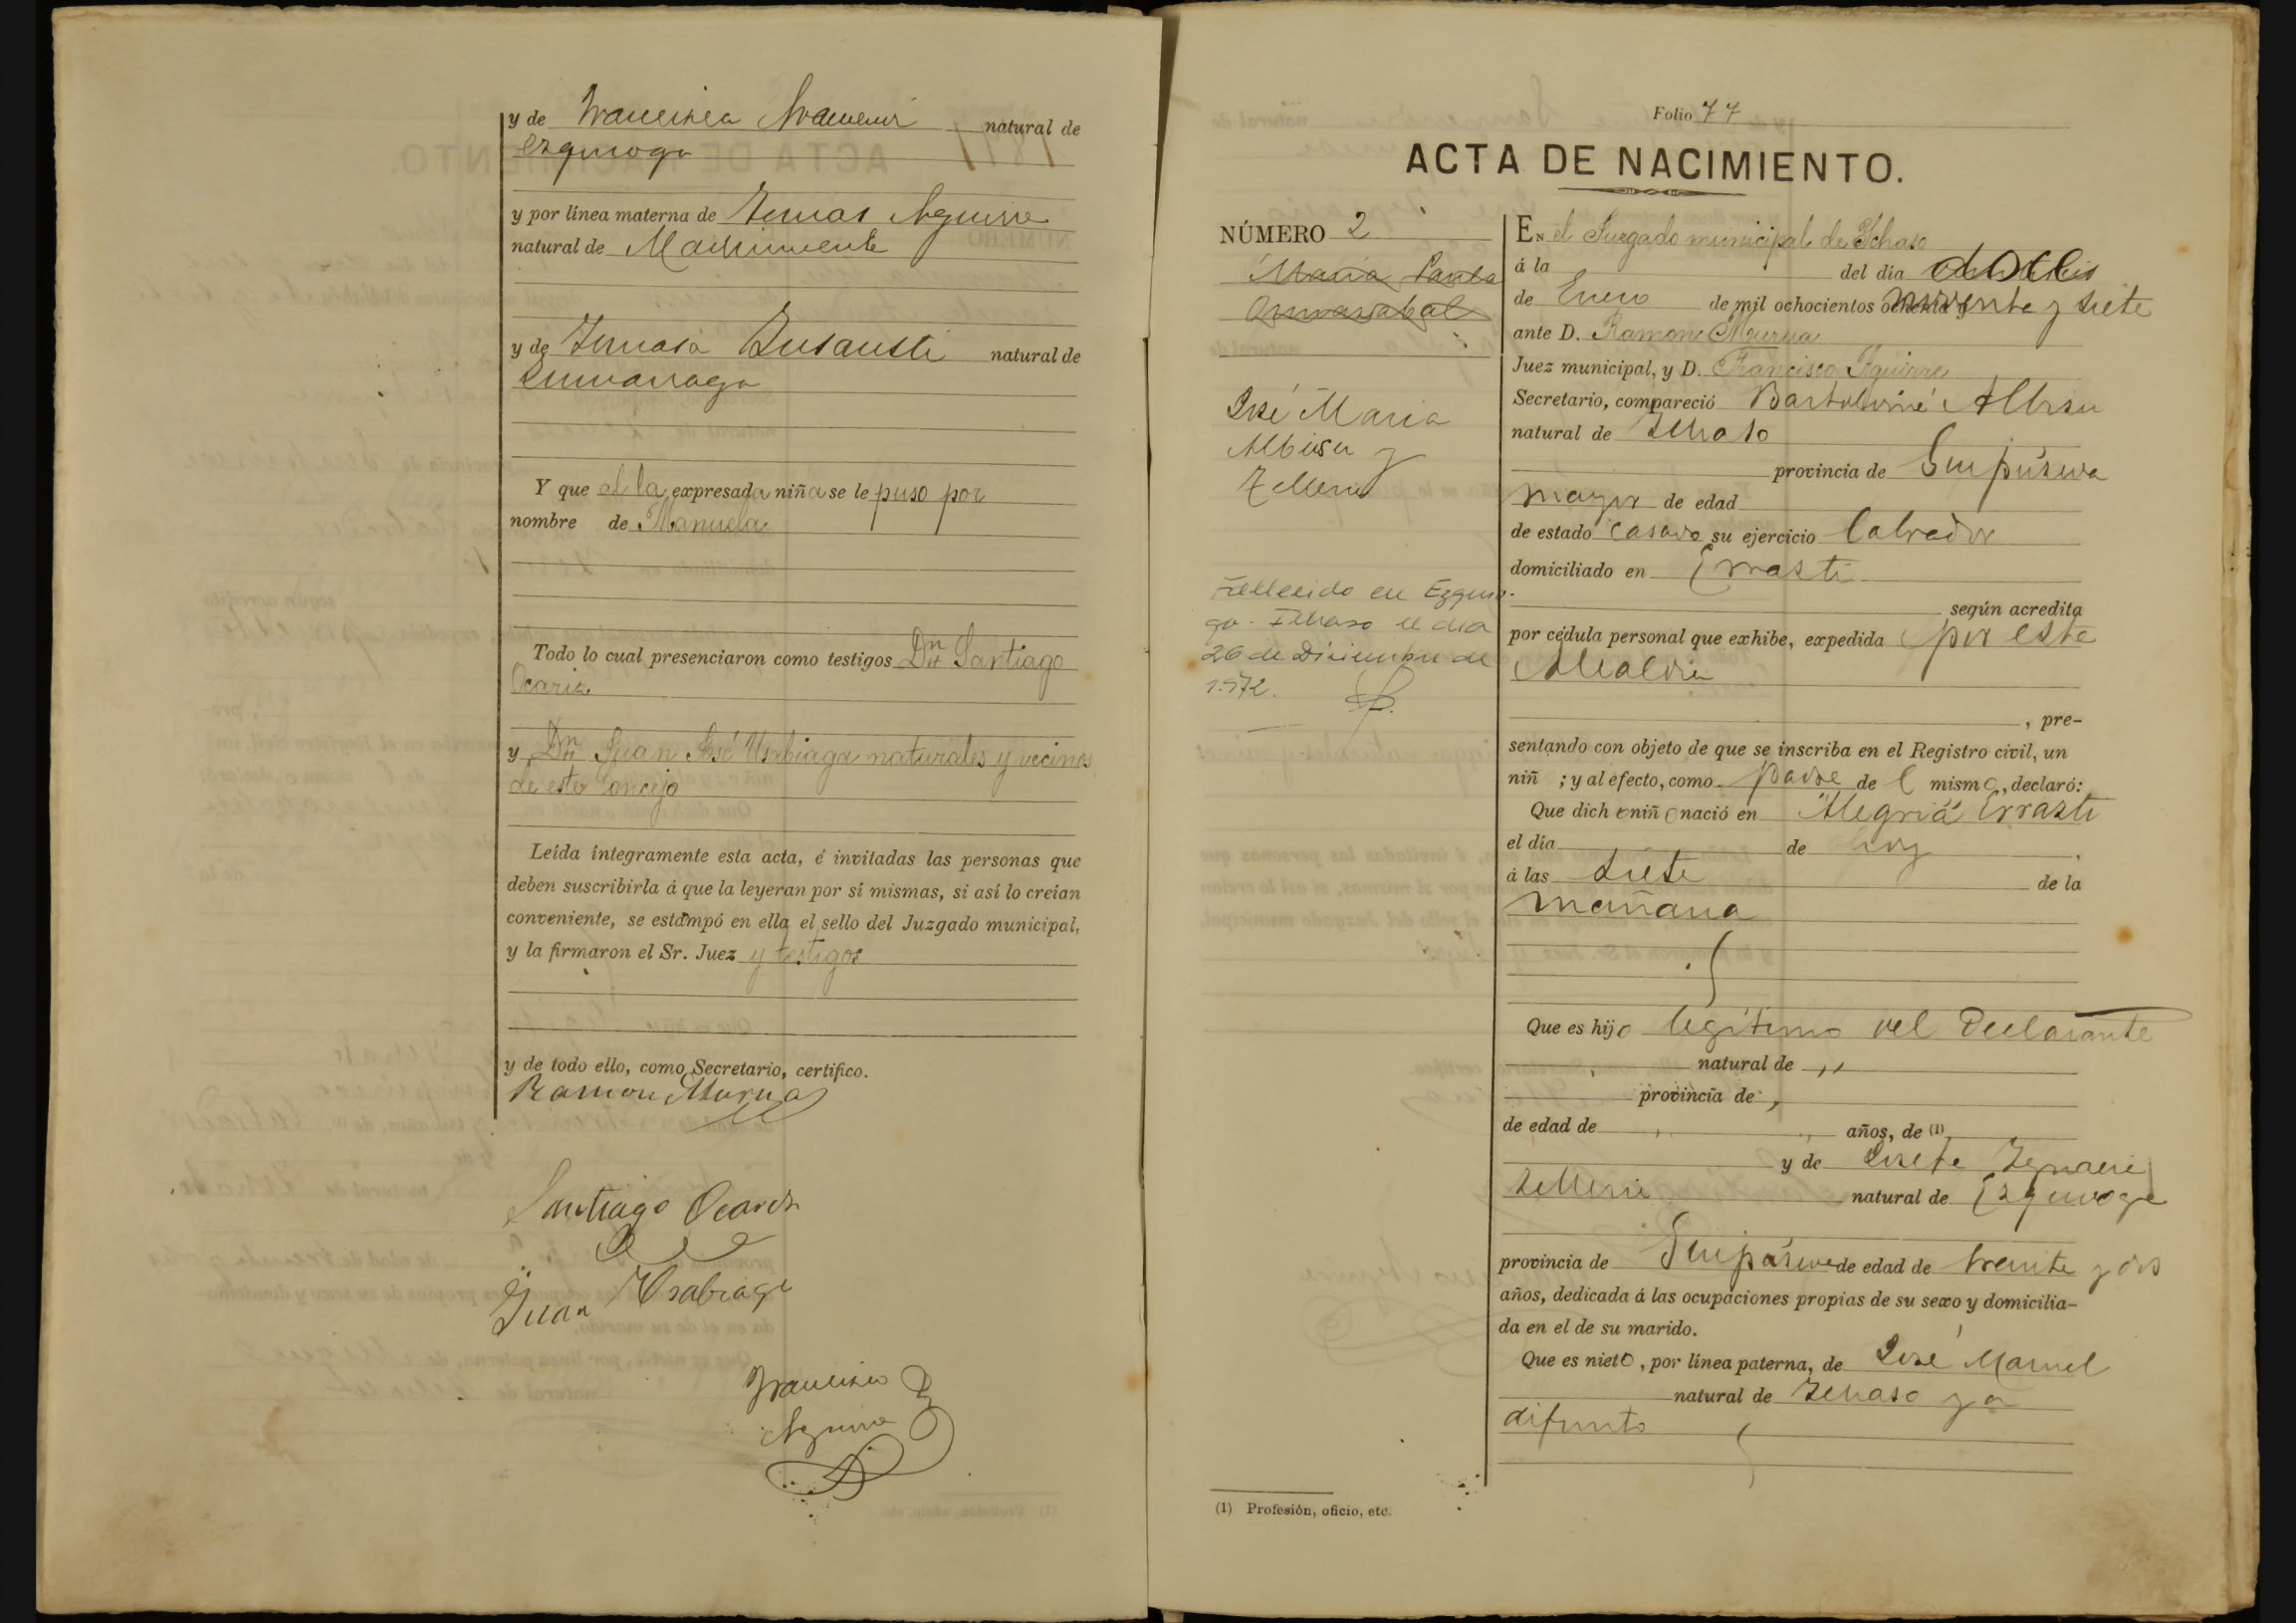 y de Francisca Aramburu natural de
Ezquioga
y por línea materna de Tomas Aguirre
natural de Machinventa
y de Tomasa Lusausti natural de
Zumarraga
Y que á la expresada niña se le puso por
nombre de Manuela
Todo lo cual presenciaron como testigos Dn Santiago
Ocariz
y Dn Juan José Usabiaga naturales y vecinos
de este Concejo
Leída íntegramente esta acta, é invitadas las personas que
deben suscribirla á que la leyeran por sí mismas, si así lo creían
conveniente, se estampó en ella el sello del Juzgado municipal,
y la firmaron el Sr. Juez y testigos
y de todo ello, como Secretario, certifico.
Ramon Murua
Santiago Ocariz
Juan Usabiaga
Francisco
Aguirre
Folio 77
ACTA DE NACIMIENTO.
NÚMERO 2
María
José Maria
Albisu y
Telleria
Fallecido en Ezquio-
ga-Ichaso el dia
26 de Diciembre de
1.972.
En el Juzgado municipal de Ichaso
á la del día doce
de Enero de mil ochocientos noventa y siete
ante D. Ramon Murua
Juez municipal, y D. Francisco Aguirre
Secretario, compareció Bartolomé Albisu
natural de Ichaso
provincia de Guipúzcoa
mayor de edad
de estado casado su ejercicio labrador
domiciliado en Errasti
según acredita
por cédula personal que exhibe, expedida por esta
Alcaldia
, pre-
sentando con objeto de que se inscriba en el Registro civil, un
niñ ; y al efecto, como padre del mismo, declaró:
Que dicho niño nació en Alegria Errasti
el día de hoy
á las siete de la
mañana
Que es hijo legítimo del Declarante
natural de ,,
provincia de ,
de edad de , , años, de (1)
y de Josefa Ignacia
Telleria natural de Ezquioga
provincia de Guipúzcoa de edad de treinta y dos
años, dedicada á las ocupaciones propias de su sexo y domicilia-
da en el de su marido.
Que es nieto, por línea paterna, de José Manuel
natural de Ichaso ya
difunto
(1) Profesión, oficio, etc.